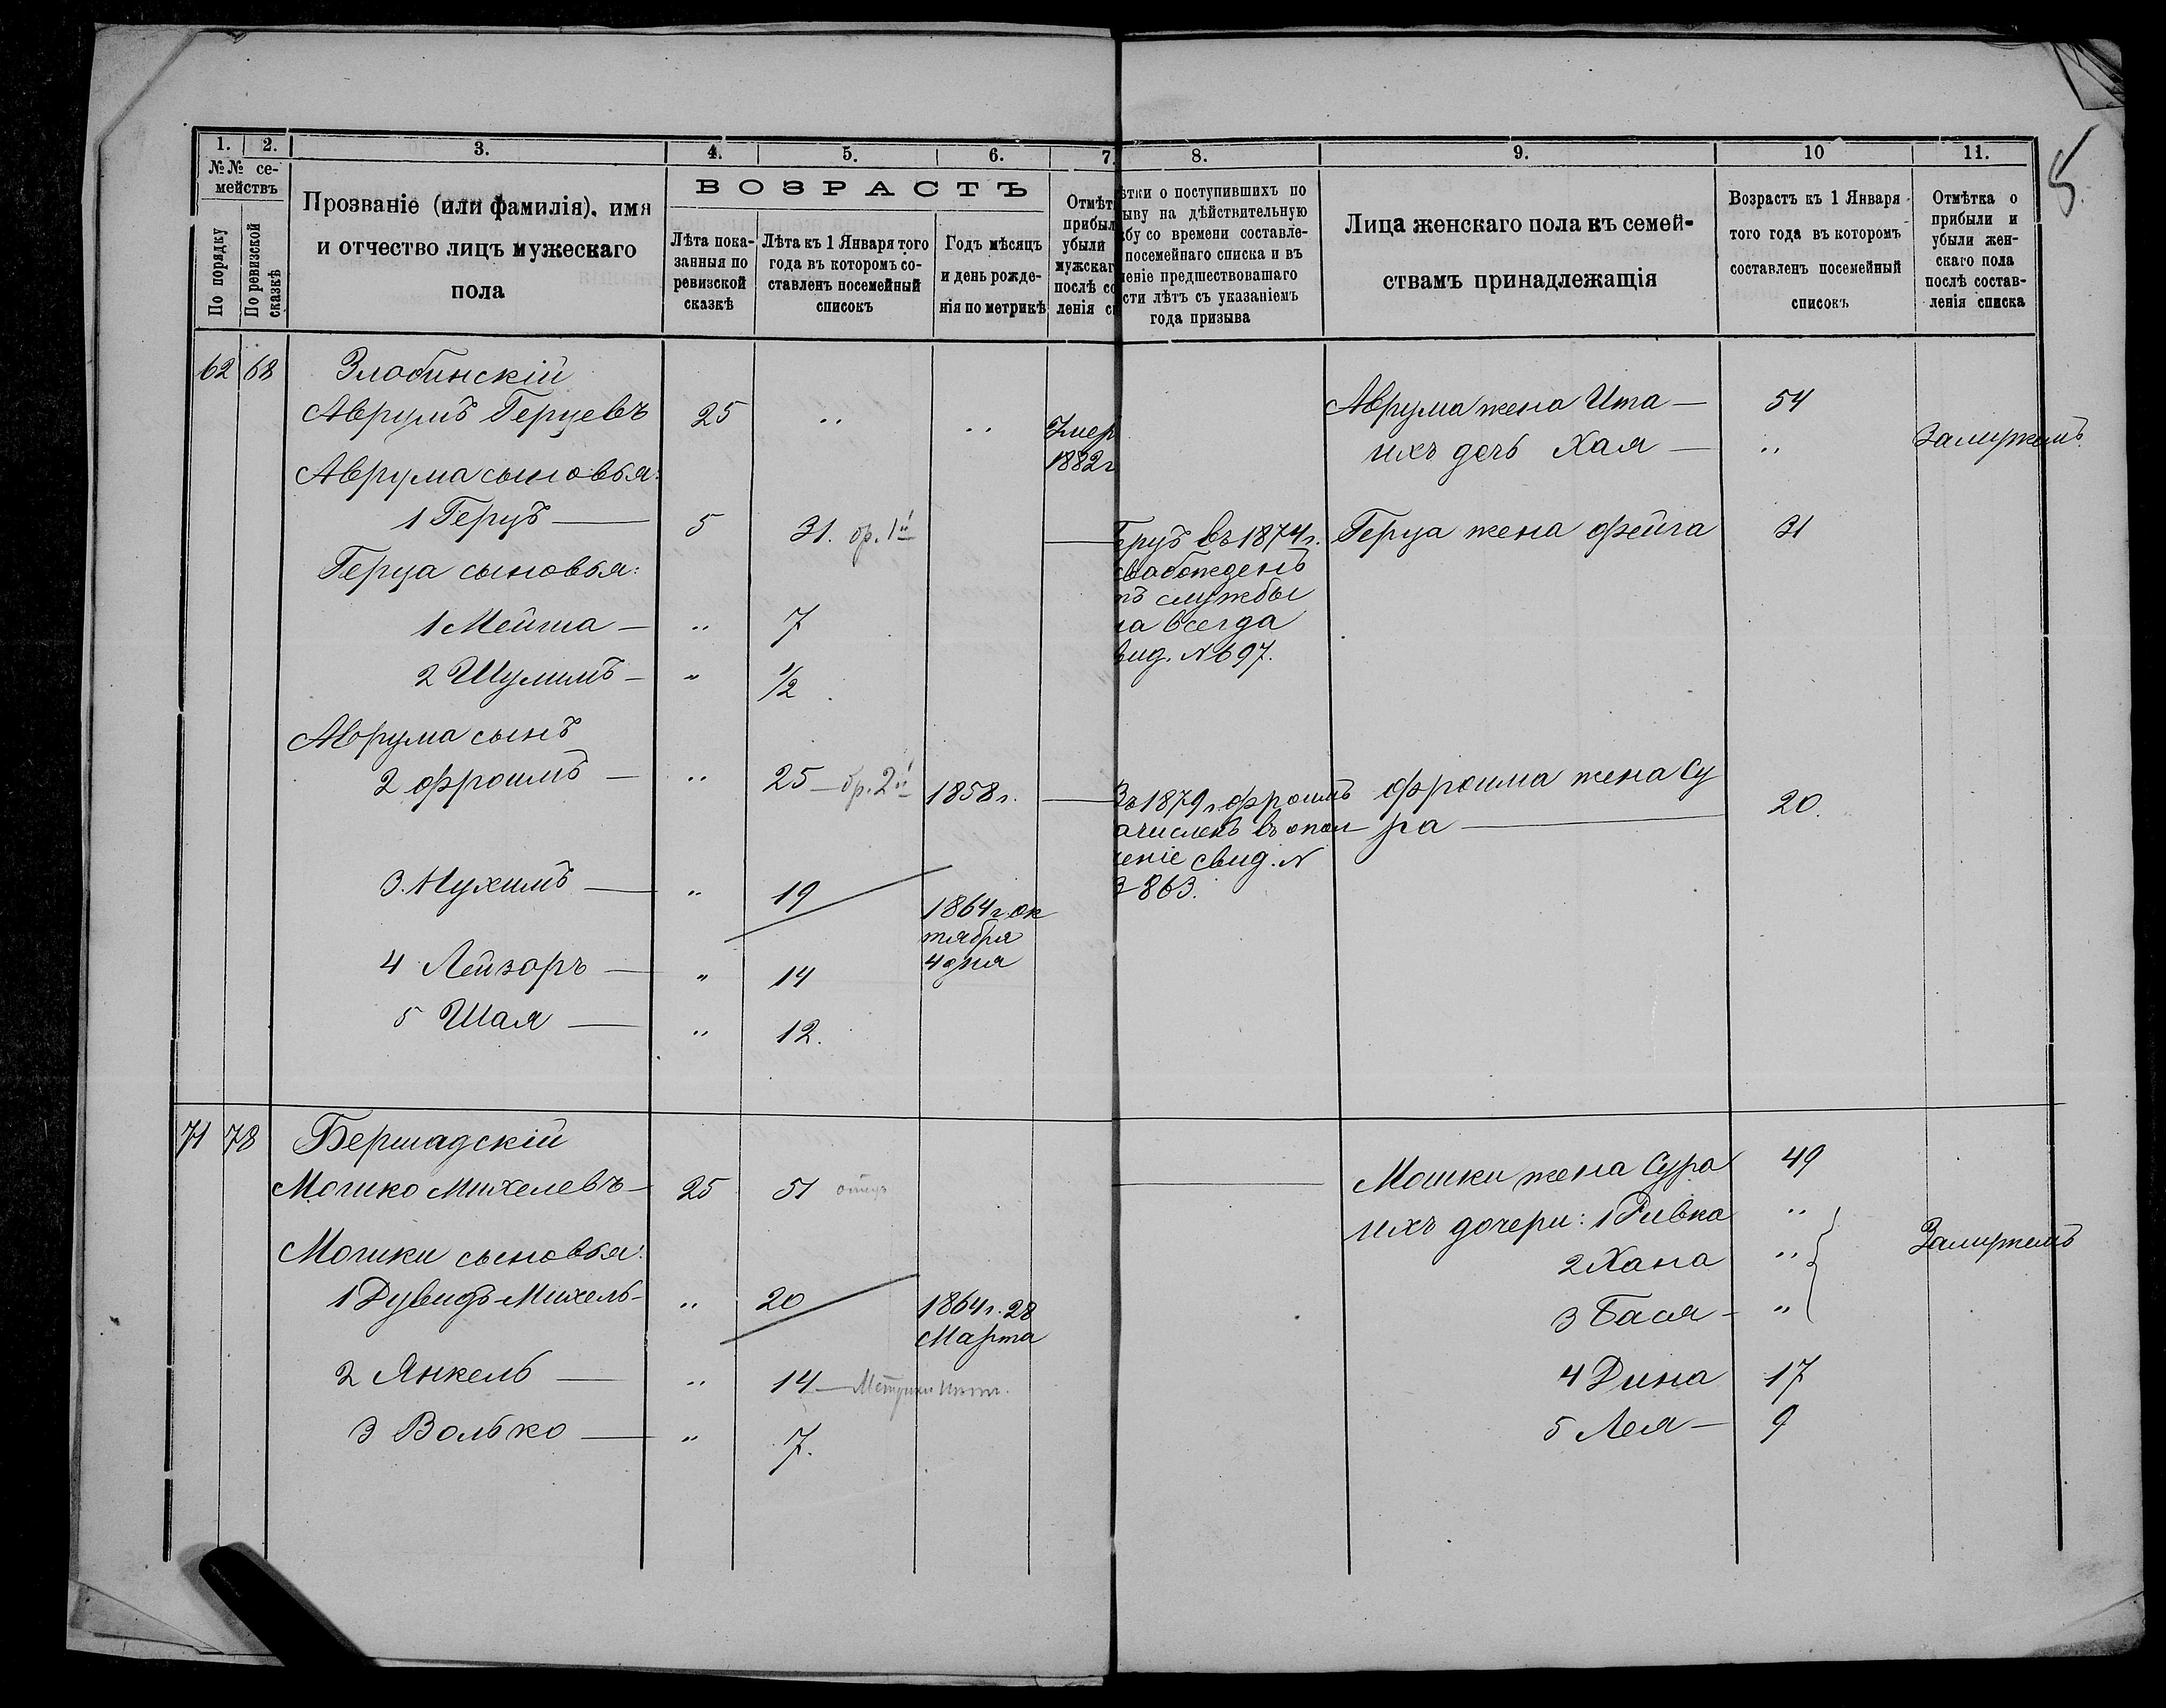 1. 2. 3. 4. 5. 6. 7. 8. 9. 10 11.
№№ се-
мействъ
По порядку
По ревизской
сказкѣ
Прозваніе (или фамилія), имя
и отчество лицъ мужескаго
пола
ВОЗРАСТЪ
Лѣта пока-
занныя по
ревизской
сказкѣ
Лѣта къ 1 Января того
года въ которомъ со-
ставленъ посемейный
списокъ
Годъ мѣсяцъ
и день рожде-
нія по метрикѣ
Отмѣт
прибыл
убыли
мужскаг
послѣ со
ленія с
ѣтки о поступившихъ по
ыву на дѣйствительную
бу со времени составле-
посемейнаго списка и въ
еніе предшествовашаго
сти лѣтъ съ указаніемъ
года призыва
Лица женскаго пола къ семей-
ствамъ принадлежащія
Возрастъ къ 1 Января
того года въ которомъ
составленъ посемейный
списокъ
Отмѣтка о
прибыли и
убыли жен-
скаго пола
послѣ состав-
ленія списка
5.
62 68 Злобинскій
Аврумъ Герцевъ 25 " " Умер
1882 г
Аврума жена Ита — 54
ихъ дочь Хая — " Замужемъ
Аврума сыновья:
1 Герцъ — 5 31. бр. 1й
ерцъ въ 1874 г.
свабожденъ
тъ службы
на всегда
вид. № 697.
Герца жена Фейга 31
Герца сыновья:
1 Мейша — " 7
2 Шулимъ — " 1/2
Аврума сынъ
2 Фроимъ — " 25 — бр. 2й 1858 г. —
Въ 1879 г. Фроимъ
ачисленъ въ опол
ченіе свид. №
2863.
Фроима жена Су
ра — 20.
3. Нухимъ — " 19 1864 г. ок
тября
4 дня
4 Лейзоръ — " 14
5 Шая — " 12.
71 78 Бершадскій
Мошко Михелевъ — 25 51 отецъ
Мошки жена Сура 49
ихъ дочери: 1 Ривка "
2 Хана " Замужемъ
3 Бася — "
4 Дина 17
5 Лея — 9
Мошки сыновья:
1 Дувидъ-Михель — " 20 1864 г. 28
Марта
2 Янкель — " 14 —
3 Волько — " 7.